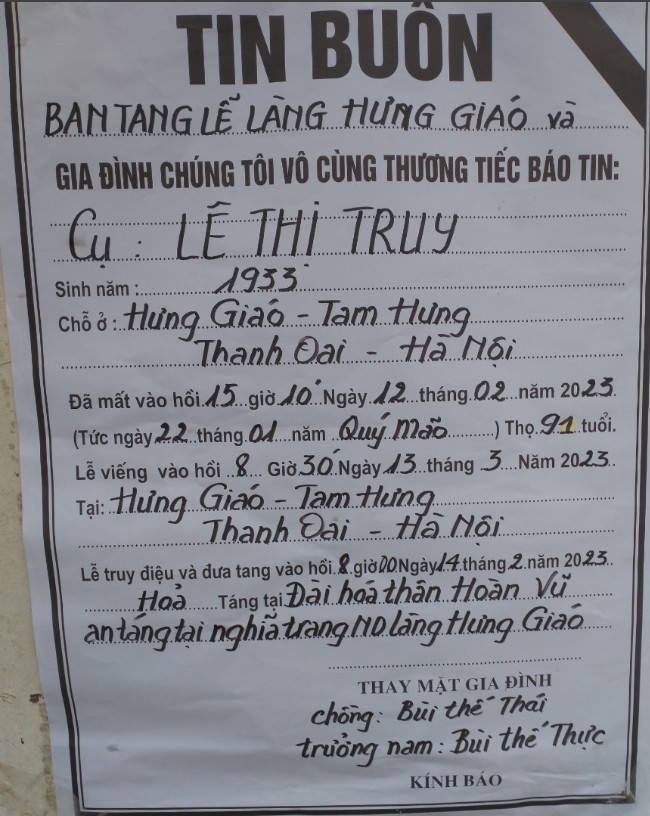 TIN BUỒN
BAN TANG LỄ LÀNG HƯNG GIÁO và
GIA ĐÌNH CHÚNG TÔI VÔ CÙNG THƯƠNG TIẾC BÁO TIN:
Cụ : LÊ THỊ TRUY
Sinh năm : 1933
Chỗ ở : Hưng Giáo - Tam Hưng
Thanh Oai - Hà Nội
Đã mất vào hồi 15 giờ 10' Ngày 12 tháng 02 năm 2023
(Tức ngày 22 tháng 01 năm Quý Mão ) Thọ 91 tuổi.
Lễ viếng vào hồi 8 Giờ 30' Ngày 13 tháng 3 Năm 2023
Tại: Hưng Giáo - Tam Hưng
Thanh Oai - Hà Nội
Lễ truy điệu và đưa tang vào hồi 8 giờ 00 Ngày 14 tháng 2 năm 2023
Hoả Táng tại Đài hóa thân Hoàn Vũ
an táng tại nghĩa trang ND làng Hưng Giáo
THAY MẶT GIA ĐÌNH
chồng: Bùi thế Thái
trưởng nam: Bùi thế Thực
KÍNH BÁO